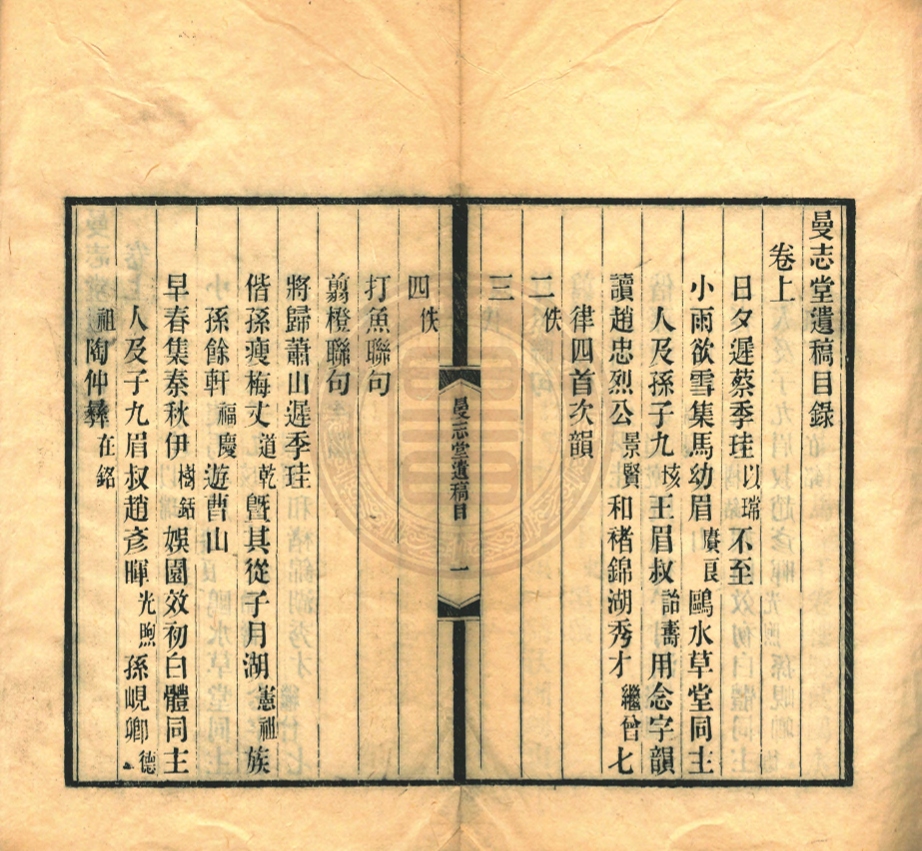 曼志堂遺稿目錄
卷上
日夕遲蔡季珪以瑺不至
小雨欲雪集馬幼眉賡良鷗水草堂同主
人及孫子九垓王眉叔詒壽用念字韻
讀趙忠烈公景賢和褚錦湖秀才繼曾七
律四首次韻
二佚
三
曼志堂遺稿目 一
四佚
打魚聯句
翦橙聯句
將歸蕭山遲季珪
偕孫瘦梅丈道乾曁其從子月湖憲祖族
孫餘軒福慶遊曹山
早春集秦秋伊樹銛娛園效初白體同主
人及子九眉叔趙彥暉光煦孫峴卿德
祖陶仲彝在銘